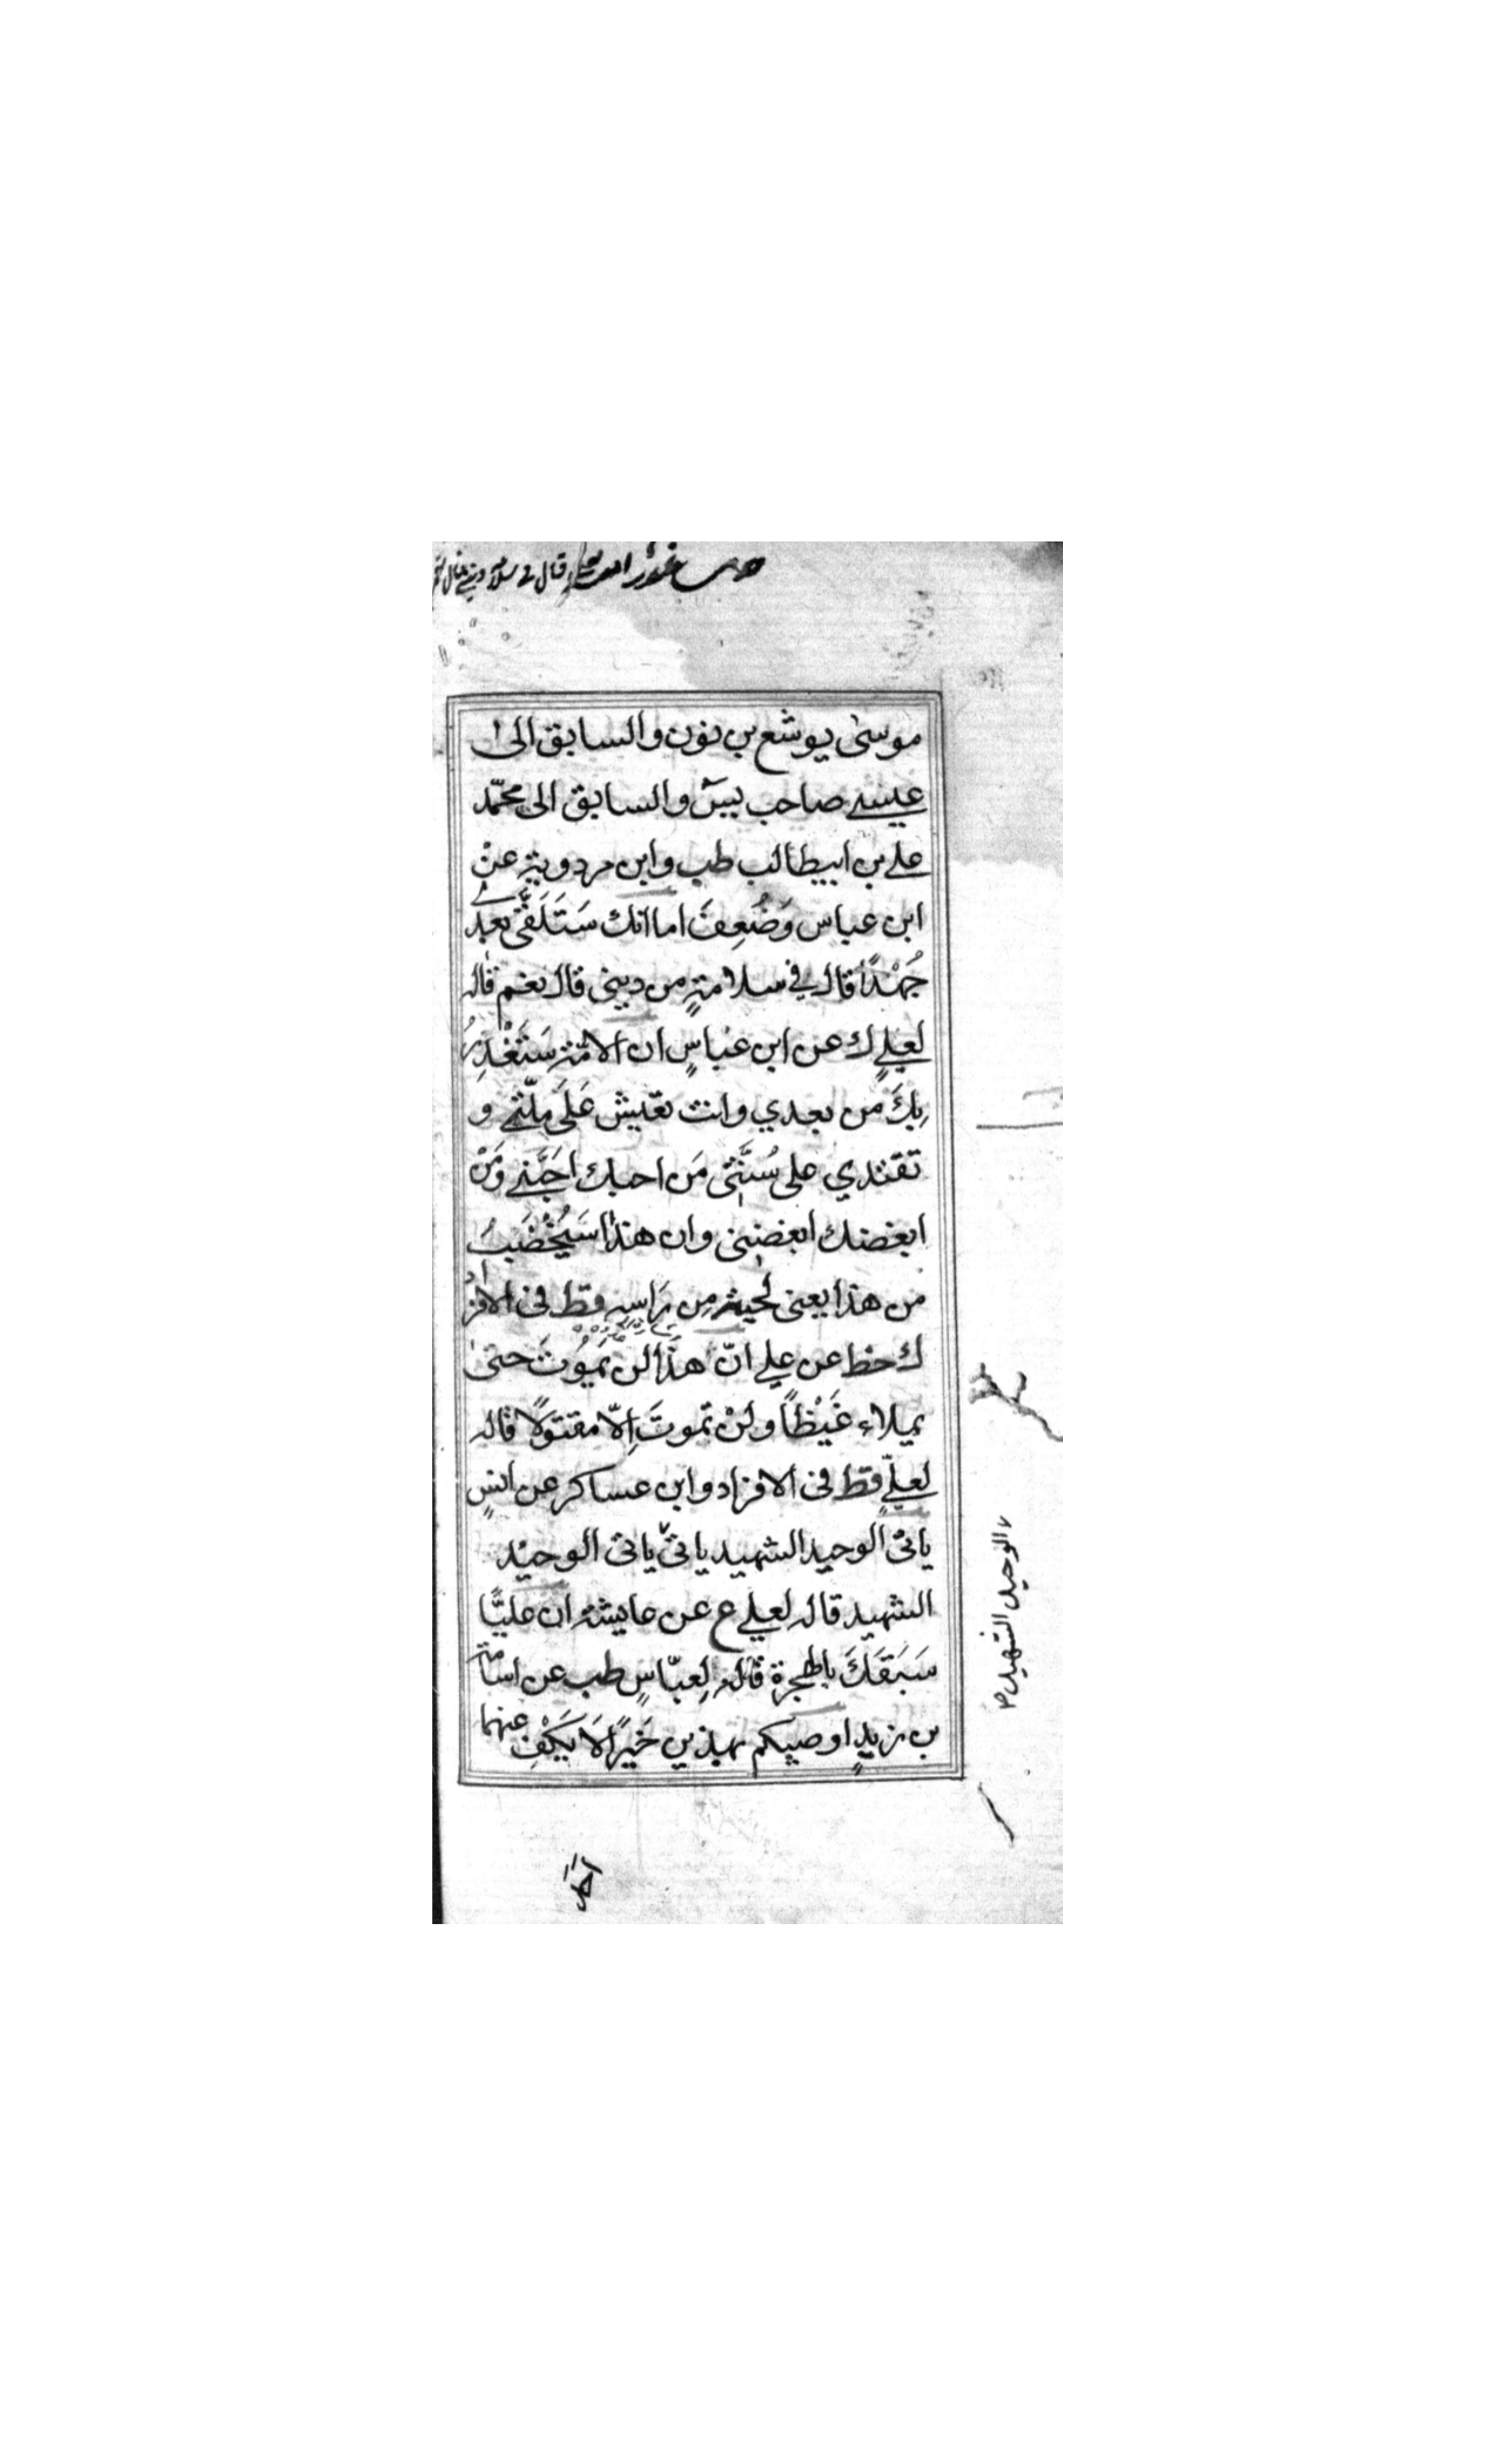 موسىٰ يوشع بن نون والسابق الىٰ
عيسے صاحب يسٓ والسابق الى محمّد
علے بن ابيطالب طب وابن مردوية عنْ
ابن عباس وَضُعِفَ اما انك سَتَلَقّٰى بعدے
جُهْدًا قال في سلامةٍ من دينى قال نعم قاله
لعلےٍ ك عن ابن عباسٍ ان الامّة سَتَغْدِرُ
بِكَ من بعدي وانت تعيش عَلَى مِلّتے و
تقتدي على سُنَّتى مَن احبك احَبَّنے وَمَنْ
ابغضك ابغضنى وان هذا سَيُخْضَبُ
من هذا يعنى لحيته مِن رَاسِه قط فى الافرَاد
ك خط عن علےٍ انّ هذَا لن يَمُوتَ حتىٰ
يملاء غَيْظًا ولنْ تموتَ اِلّا مقتولًا قاله
لعلےٍّ قط فى الافراد وابن عساكر عن انسٍ
يابى الوحيد الشهيد يابى يابى الوحيد
الشهيد قاله لعلے ع عن عايشة ان عليًّا
سَبَقَكَ بالهجرة قاله لِعبّاسٍ طب عن اسامة
بن زيدٍ اوصيكم بهذين خَيْرًا لَا يَكُفّ عنهما
الوحيد الشهيد